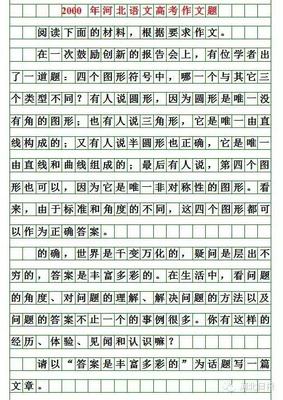 2000 年河北语文高考作文题
阅读下面的材料，根据要求作文。
在一次鼓励创新的报告会上，有位学者出
了一道题：四个图形符号中，哪一个与其它三
个类型不同？有人说圆形，因为圆形是唯一没
有角的图形；也有人说三角形，它是唯一由直
线构成的；又有人说半圆形也正确，它是唯一
由直线和曲线组成的；最后有人说，第四个图
形也可以，因为它是唯一非对称性的图形。看
来，由于标准和角度的不同，这四个图形都可
以作为正确答案。
的确，世界是千变万化的，疑问是层出不
穷的，答案是丰富多彩的。在生活中，看问题
的角度、对问题的理解、解决问题的方法以及
问题的答案不止一个的事例很多。你有这样的
经历、体验、见闻和认识嘛？
请以“答案是丰富多彩的”为话题写一篇
文章。
河北日报